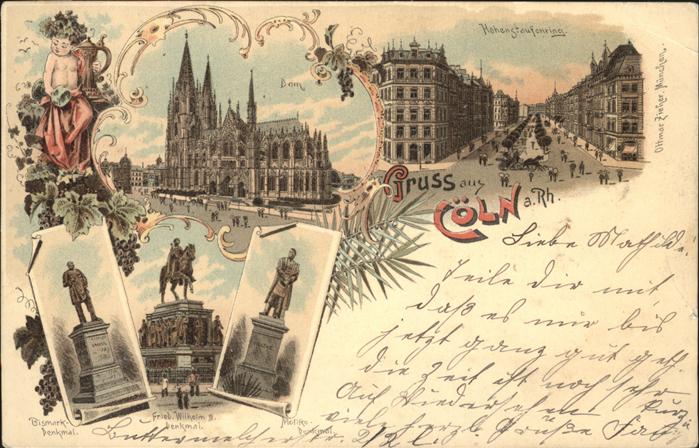 Hohenstaufenring.
Dom.
Ottmar Zieher, München.
Gruss aus
CÖLN a. Rh.
Liebe Mathilde!
Teile dir mit,
daß es mir bis
jetzt ganz gut geht.
die Zeit ist noch sehr
kurz
Auf Wiedersehen
viele herzl. Grüße
Bismark-
Denkmal.
Fried. Wilhelm II.
Denkmal.
Moltke-
Denkmal.